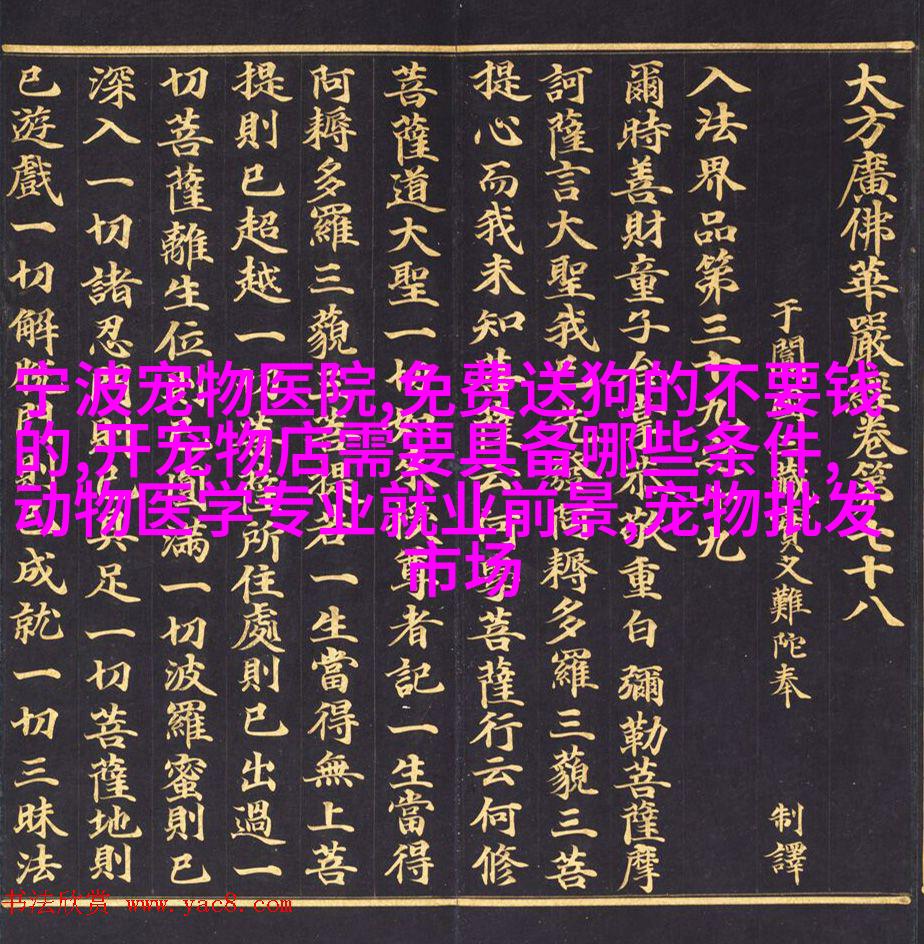 大方廣佛華嚴經卷第七十八
于闐三藏實叉難陀奉 制譯
入法界品第三十九之十九
爾時善財童子合掌恭敬重白彌勒菩薩摩
訶薩言大聖我已先發阿耨多羅三藐三菩
提心而我未知菩薩云何學菩薩行云何修
菩薩道大聖一切如來授尊者記一生當得
阿耨多羅三藐三菩提若一生當得無上菩
提則已超越一切菩薩所住處則已出過一
切菩薩離生位則已圓滿一切波羅蜜則已
深入一切諸忍門則已具足一切菩薩地則
已遊戲一切解脫門則已成就一切三昧法
宁波宠物医院,免费送狗的不要钱
的,开宠物店需要具备哪些条件,
动物医学专业就业前景,宠物批发
市场
书法欣赏 www.yac8.com